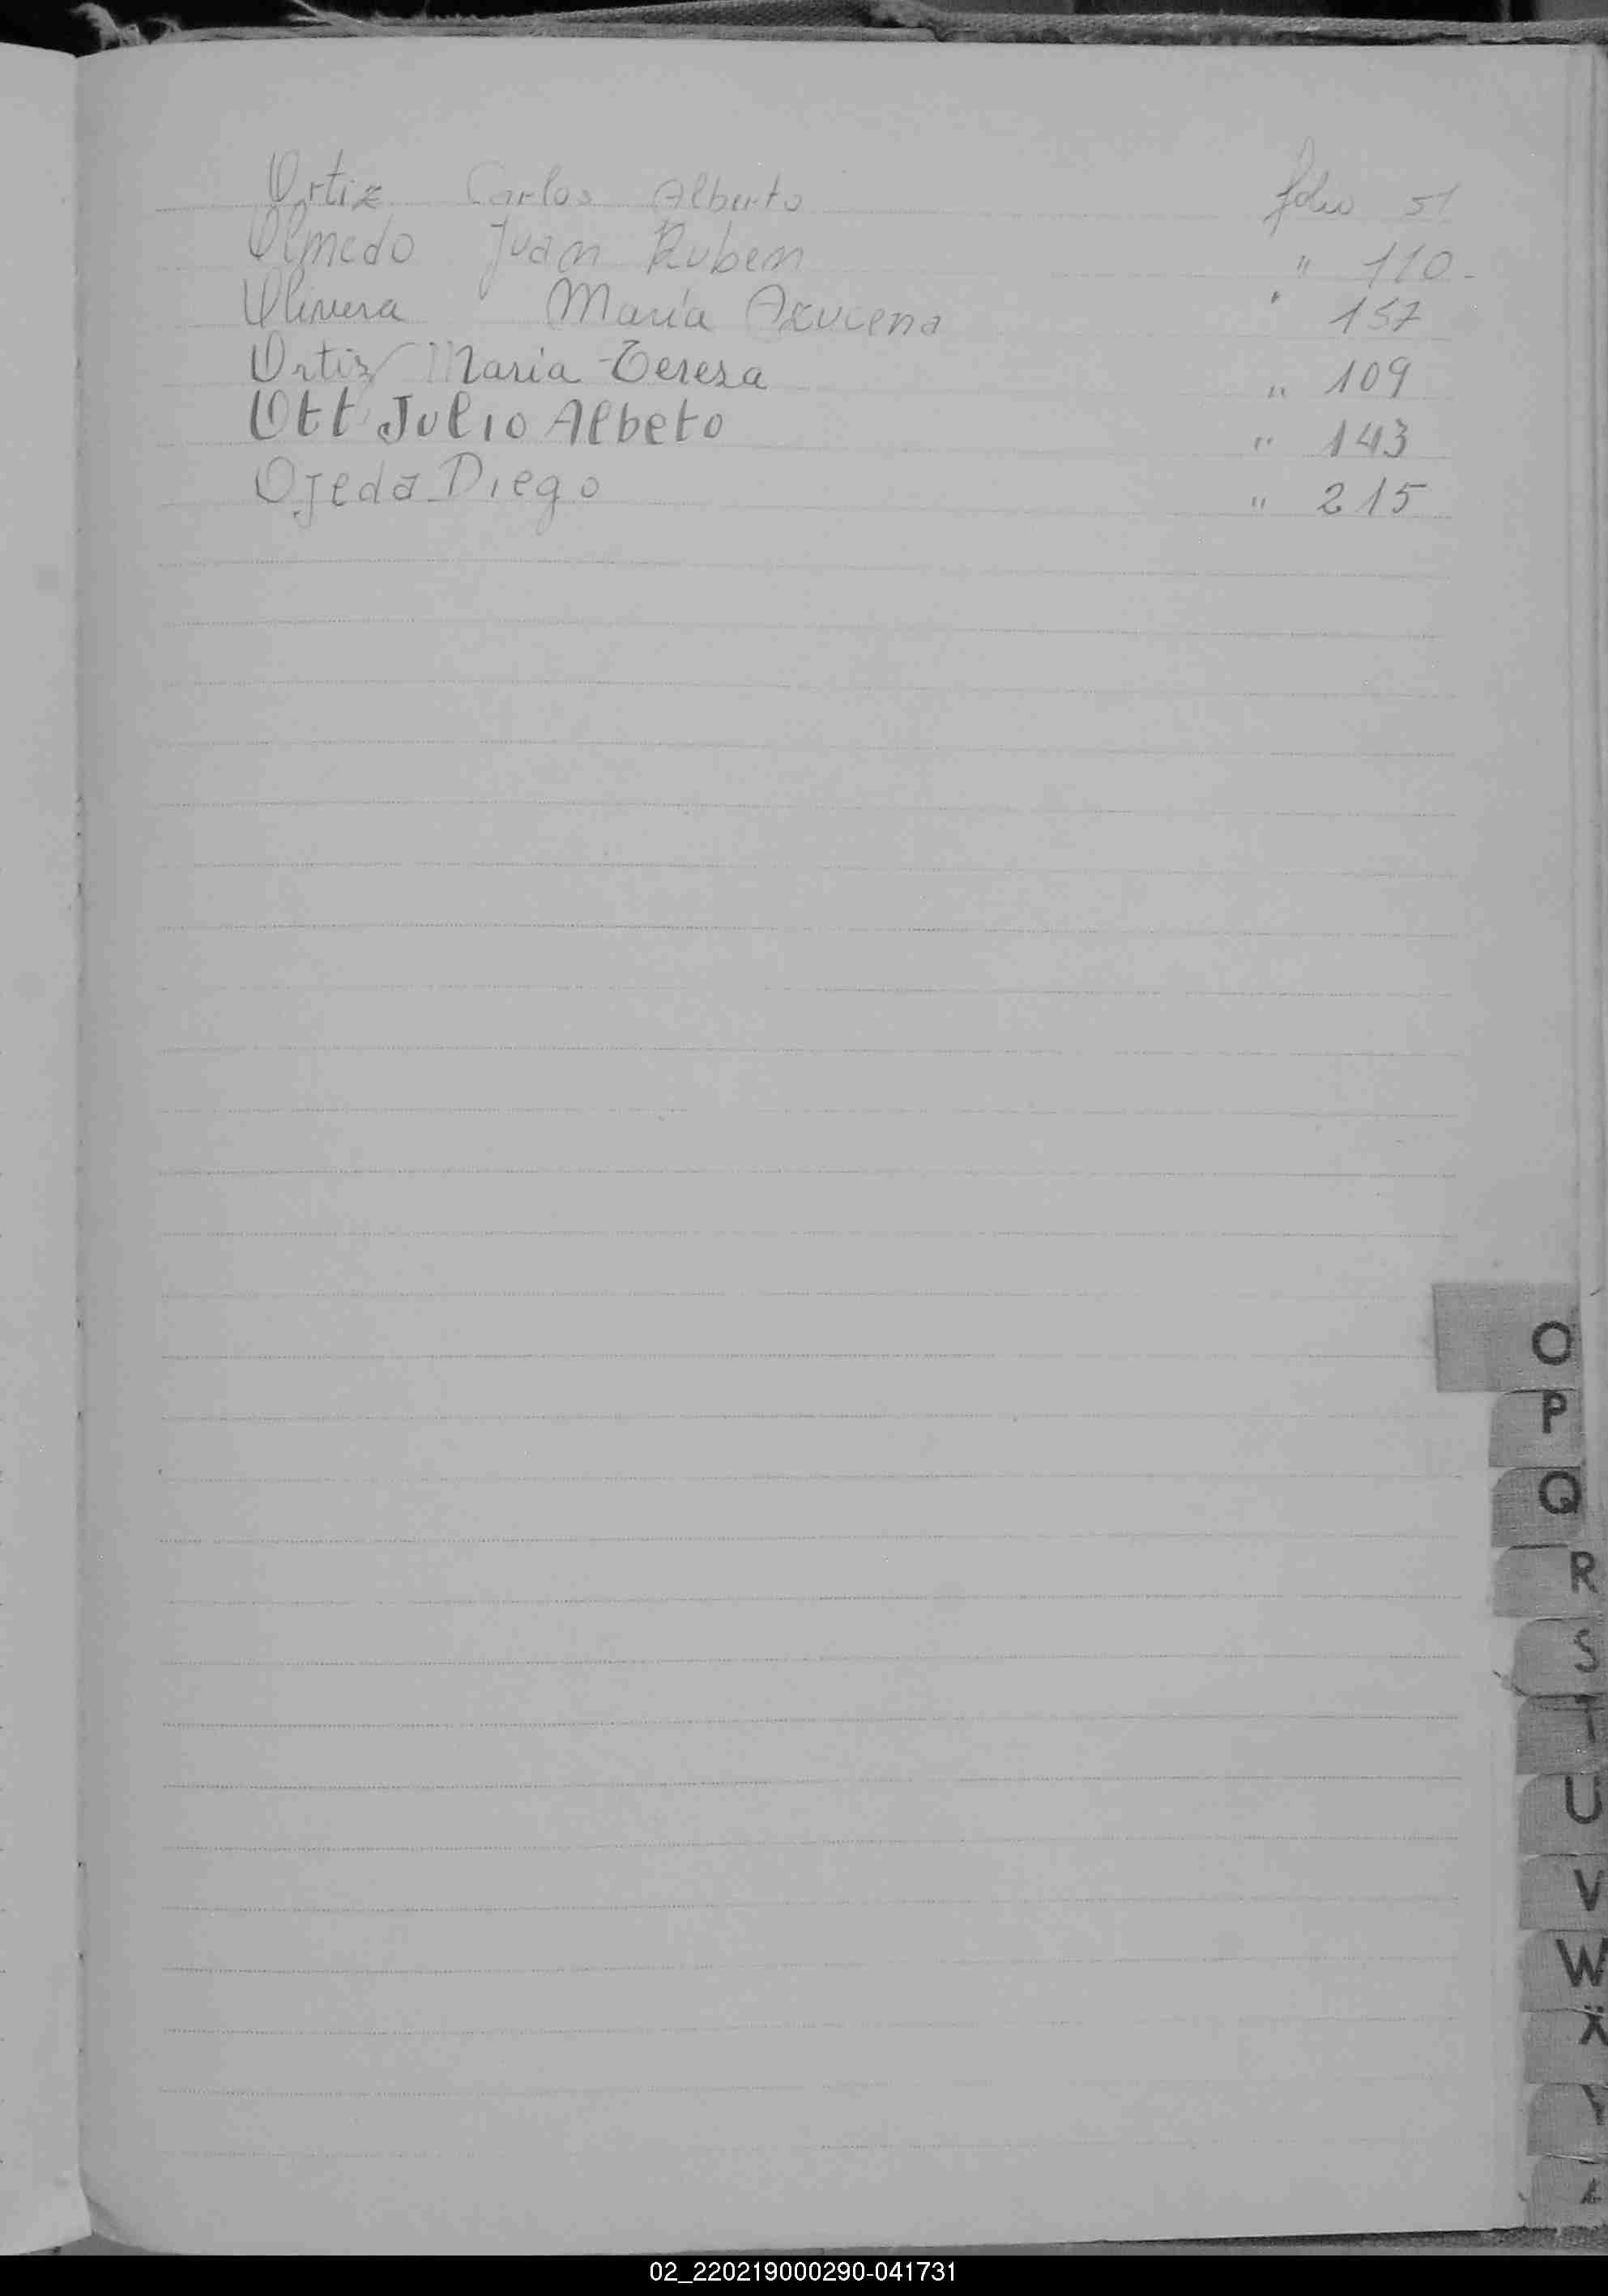 Ortiz Carlos Alberto folio 51
Olmedo Juan Ruben " 110-
Olivera María Azucena " 157
Ortiz Maria Teresa " 109
Ott Julio Albeto " 143
Ojeda Diego " 215
O
P
Q
R
S
T
U
V
W
X
Y
Z
02_220219000290-041731